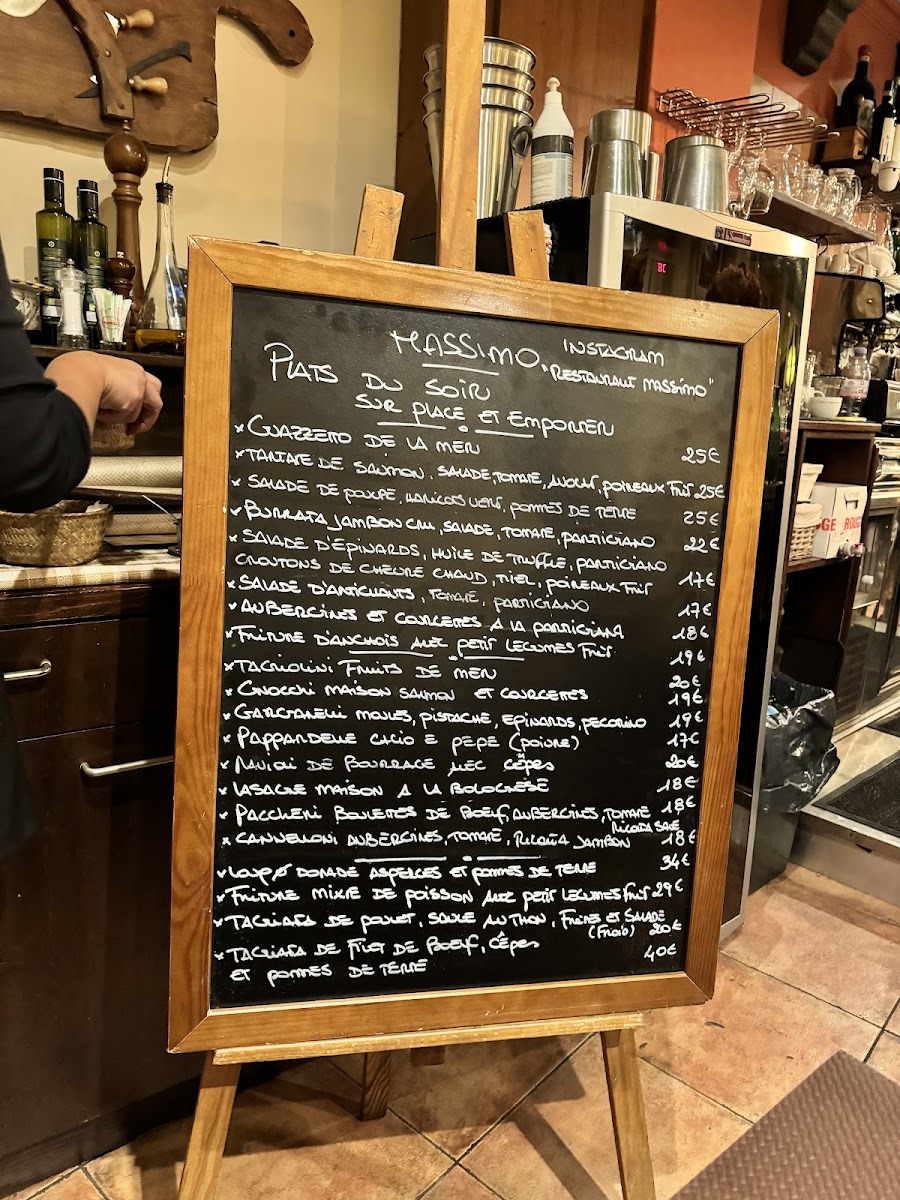 MASSIMO
INSTAGRAM
"RESTAURANT MASSIMO"
PLATS DU SOIR
SUR PLACE ET EMPORTER
× GUAZZETTO DE LA MER 25€
× TARTARE DE SAUMON, SALADE, TOMATE, AVOCAT, POIREAUX FRIT 25€
× SALADE DE POULPE, HARICOTS VERTS, POMMES DE TERRE 25€
× BURRATA JAMBON CRU, SALADE, TOMATE, PARTIGIANO 22€
× SALADE D'ÉPINARDS, HUILE DE TRUFFLE, PARTIGIANO
CROUTONS DE CHEVRE CHAUD, MIEL, POIREAUX FRIT 17€
× SALADE D'ARTICHAUTS, TOMATE, PARTIGIANO 17€
× AUBERGINES ET COURGETTES A LA PARTIGIANA 18€
× FRITURE D'ANCHOIS AVEC PETIT LEGUMES FRIT 19€
× TAGLIOLINI FRUITS DE MER 20€
× GNOCCHI MAISON SAUMON ET COURGETTES 19€
× GARGANELLI MOULES, PISTACHE, EPINARDS, PECORINO 19€
× PAPPARDELLE CACIO E PEPE (POIVRE) 17€
× RAVIOLI DE BOURRACHE AVEC CÊPES 20€
× LASAGNE MAISON A LA BOLOGNESE 18€
× PACCHERI BOULETTES DE BŒUF, AUBERGINES, TOMATE 18€
RICOTTA SALÉ
× CANNELLONI AUBERGINES, TOMATE, RICOTTA JAMBON 18€
× LOUP Ø DORADE ASPERGES ET POMMES DE TERRE 34€
× FRITURE MIXTE DE POISSON AVEC PETIT LEGUMES FRIT 29€
× TAGLIATA DE POULET, SAUCE AU THON, FRITES ET SALADE
(FROID) 20€
× TAGLIATA DE FILET DE BŒUF, CÊPES 40€
ET POMMES DE TERRE